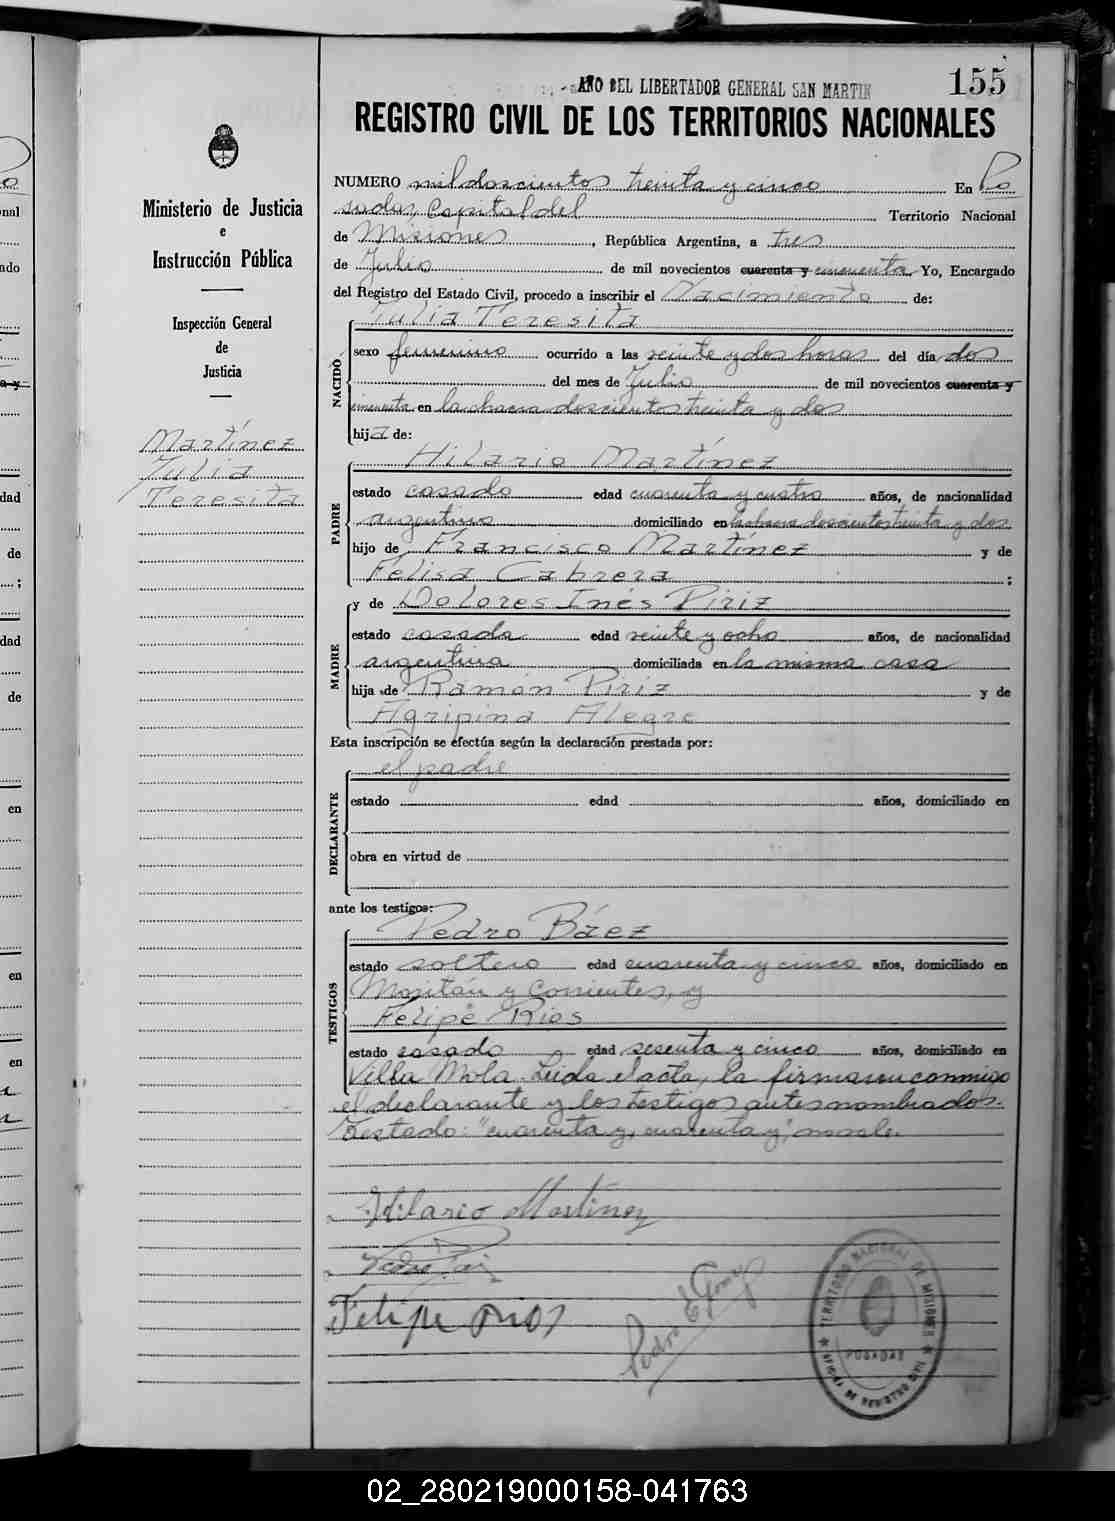 155
AÑO DEL LIBERTADOR GENERAL SAN MARTIN
REGISTRO CIVIL DE LOS TERRITORIOS NACIONALES
Ministerio de Justicia
e
Instrucción Pública
Inspección General
de
Justicia
Martínez
Julia
Teresita
NUMERO mil doscientos treinta y cinco En Po
sadas, Capital del Territorio Nacional
de Misiones, República Argentina, a tres
de Julio de mil novecientos cuarenta y cincuenta Yo, Encargado
del Registro del Estado Civil, procedo a inscribir el Nacimiento de:
Julia Teresita
NACIDO
sexo femenino ocurrido a las veinte y dos horas del día dos
del mes de Julio de mil novecientos cuarenta y
cincuenta en la chacra doscientos treinta y dos
hija de:
Hilario Martínez
PADRE
estado casado edad cuarenta y cuatro años, de nacionalidad
argentino domiciliado en la chacra doscientos treinta y dos
hijo de Francisco Martínez y de
Felisa Cabrera ;
y de Dolores Inés Piriz
MADRE
estado casada edad veinte y ocho años, de nacionalidad
argentina domiciliada en la misma casa
hija de Ramón Piriz y de
Agripina Alegre
Esta inscripción se efectúa según la declaración prestada por:
el padre
DECLARANTE
estado edad años, domiciliado en
obra en virtud de
ante los testigos:
Pedro Báez
TESTIGOS
estado soltero edad cuarenta y cinco años, domiciliado en
y Corrientes, y
Felipe Rios
estado casado edad sesenta y cinco años, domiciliado en
Villa Mola. Leida el acta, la firmaron conmigo
el declarante y los testigos antes nombrados.
Testado: "cuarenta y, cuarenta y", no vale.
Hilario Martínez
Felipe Rios
Pedro E Gomez
TERRITORIO NACIONAL DE MISIONES
POSADAS
OFICINA DE REGISTRO CIVIL
02_280219000158-041763